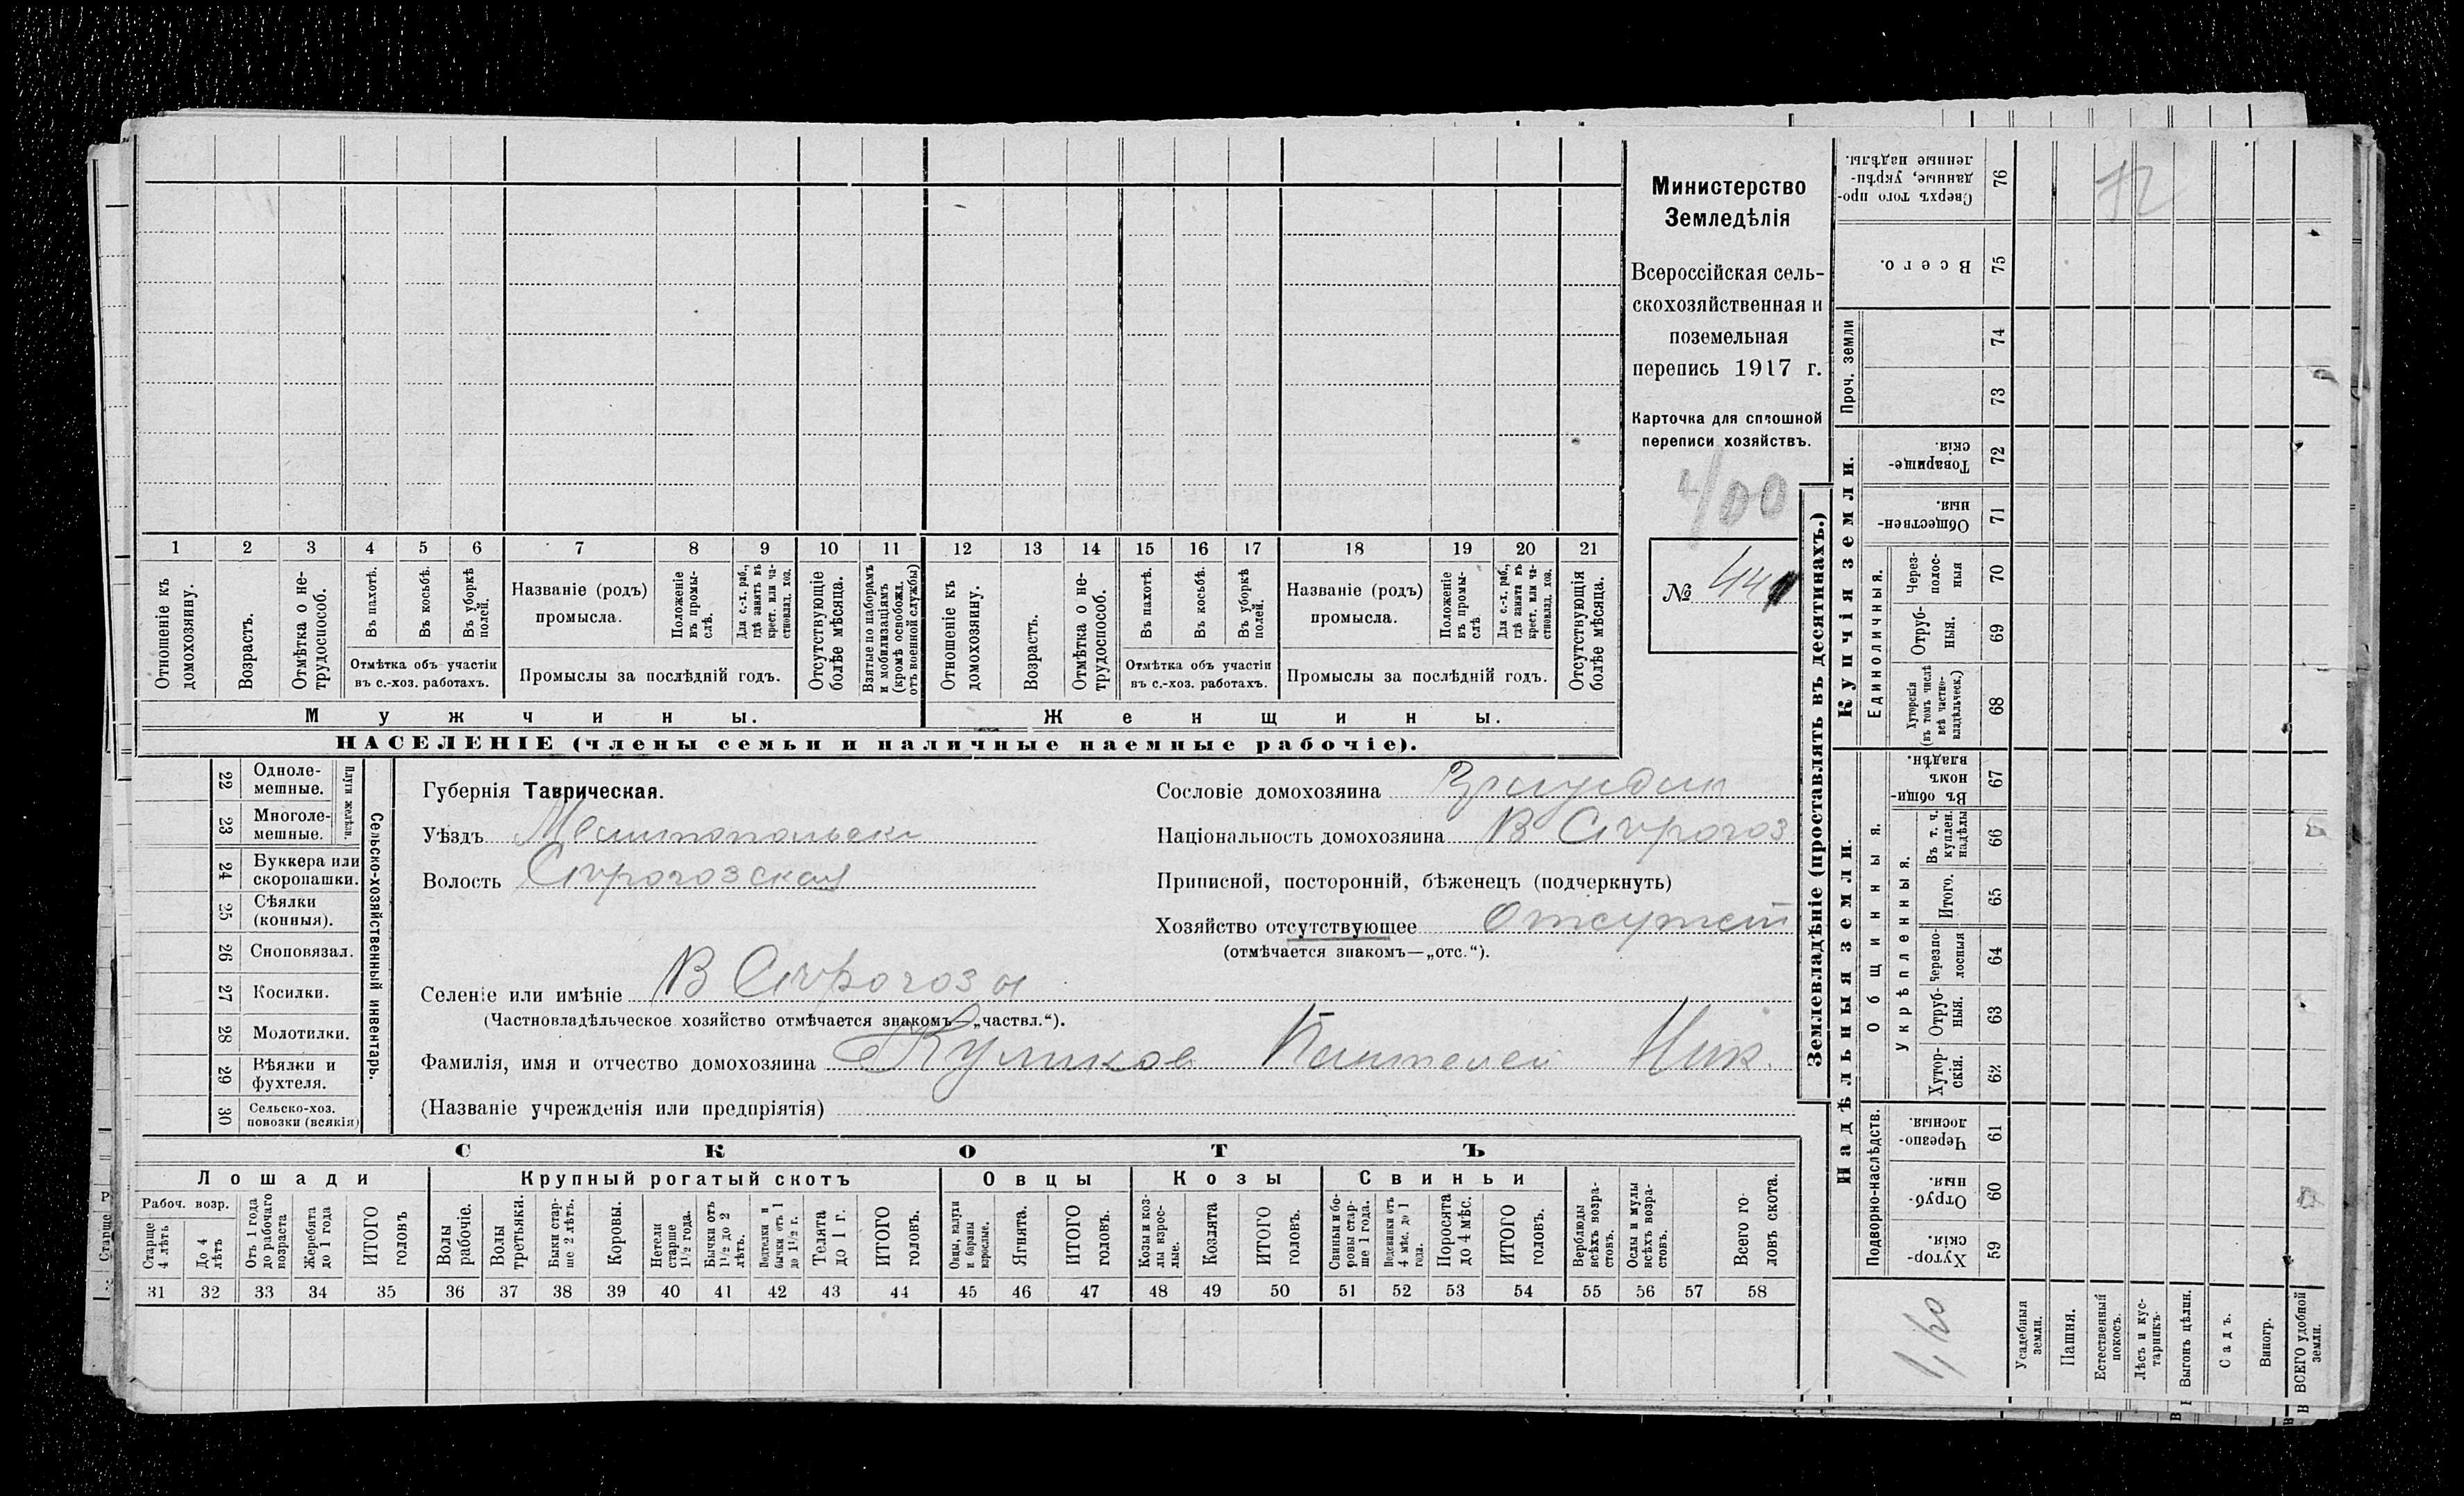 1 2 3 4 5 6 7 8 9 10 11 12 13 14 15 16 17 18 19 20 21
Отношеніе къ домохозяину.
Возрастъ.
Отмѣтка о не-трудоспособ.
Въ пахотѣ.
Въ косьбѣ.
Въ уборкѣ полей.
Отмѣтка объ участіи
въ с.-хоз. работахъ.
Названіе (родъ)
промысла.
Положеніе въ промы-слѣ.
Для с.-х. раб., гдѣ занятъ въ крест. или ча-стновлад. хоз.
Промыслы за послѣдній годъ.
Отсутствующіе болѣе мѣсяца.
Взятые по наборамъ и мобилизаціямъ (кромѣ освобожд. отъ военной службы)
Отношеніе къ домохозяину.
Возрастъ.
Отмѣтка о не-трудоспособ.
Въ пахотѣ.
Въ косьбѣ.
Въ уборкѣ полей.
Отмѣтка объ участіи
въ с.-хоз. работахъ.
Названіе (родъ)
промысла.
Положеніе въ промы-слѣ.
Для с.-х. раб., гдѣ занята въ крест. или ча-стновлад. хоз.
Промыслы за послѣдній годъ.
Отсутствующія болѣе мѣсяца.
Мужчины. Женщины.
НАСЕЛЕНІЕ (члены семьи и наличные наемные рабочіе).
Министерство
Земледѣлія
Всероссійская сель-
скохозяйственная и
поземельная
перепись 1917 г.
Карточка для сплошной
переписи хозяйствъ.
400
№ 44
22 Одноле-мешные.
23 Многоле-мешные.
Плуги желѣзн.
24 Буккера или скоропашки.
25 Сѣялки (конныя).
26 Сноповязал.
27 Косилки.
28 Молотилки.
29 Вѣялки и фухтеля.
30 Сельско-хоз. повозки (всякія)
Сельско-хозяйственный инвентарь.
Губернія Таврическая.
Уѣздъ Мелитопольски
Волость
Сословіе домохозяина
Національность домохозяина В
Приписной, посторонній, бѣженецъ (подчеркнуть)
Хозяйство отсутствующее Отсутст
(отмѣчается знакомъ—„отс.“).
Селеніе или имѣніе В
(Частновладѣльческое хозяйство отмѣчается знакомъ—„частвл.“).
Фамилія, имя и отчество домохозяина Куликов Пантелей Ник.
(Названіе учрежденія или предпріятія)
СКОТЪ
Лошади Крупный рогатый скотъ Овцы Козы Свиньи
Рабоч. возр.
Старше 4 лѣтъ
До 4 лѣтъ
Отъ 1 года до рабочаго возраста
Жеребята до 1 года
ИТОГО головъ
Волы рабочіе.
Волы третьяки.
Быки стар-ше 2 лѣтъ.
Коровы.
Нетели старше 1½ года.
Бычки отъ 1½ до 2 лѣтъ.
Подтелки и бычки отъ 1 до 1½ г.
Телята до 1 г.
ИТОГО головъ.
Овцы, валухи и бараны взрослые.
Ягнята.
ИТОГО головъ.
Козы и коз-лы взрос-лые.
Козлята
ИТОГО головъ.
Свиньи и бо-ровы стар-ше 1 года.
Подсвинки отъ 4 мѣс. до 1 года.
Поросята до 4 мѣс.
ИТОГО головъ.
Верблюды всѣхъ возра-стовъ.
Ослы и мулы всѣхъ возра-стовъ.
Всего го-ловъ скота.
31 32 33 34 35 36 37 38 39 40 41 42 43 44 45 46 47 48 49 50 51 52 53 54 55 56 57 58
Землевладѣніе (проставлять въ десятинахъ.)
Надѣльныя земли.
Купчія земли.
Проч. земли
Подворно-наслѣдств.
Общинныя.
Укрѣпленныя.
Единоличныя.
Сверхъ того про-данные, укрѣп-ленные надѣлы. 76
Всего. 75
74
73
Товарище-скія 72
Обществен-ныя. 71
Через-полос-ныя 70
Отруб-ныя. 69
Хуторскія (въ томъ числѣ всѣ частно-владѣльческ.) 68
Въ общин-номъ владѣн. 67
Въ т. ч. куплен. надѣлы 66
Итого. 65
Черезпо-лосныя 64
Отруб-ныя. 63
Хутор-скія. 62
Черезпо-лосныя. 61
Отруб-ныя. 60
Хутор-скія. 59
Усадебныя земли.
Пашня.
Естественный покосъ.
Лѣсъ и кус-тарникъ.
Выгонъ цѣлин.
Садъ.
Виногр.
ВСЕГО удобной земли.
12